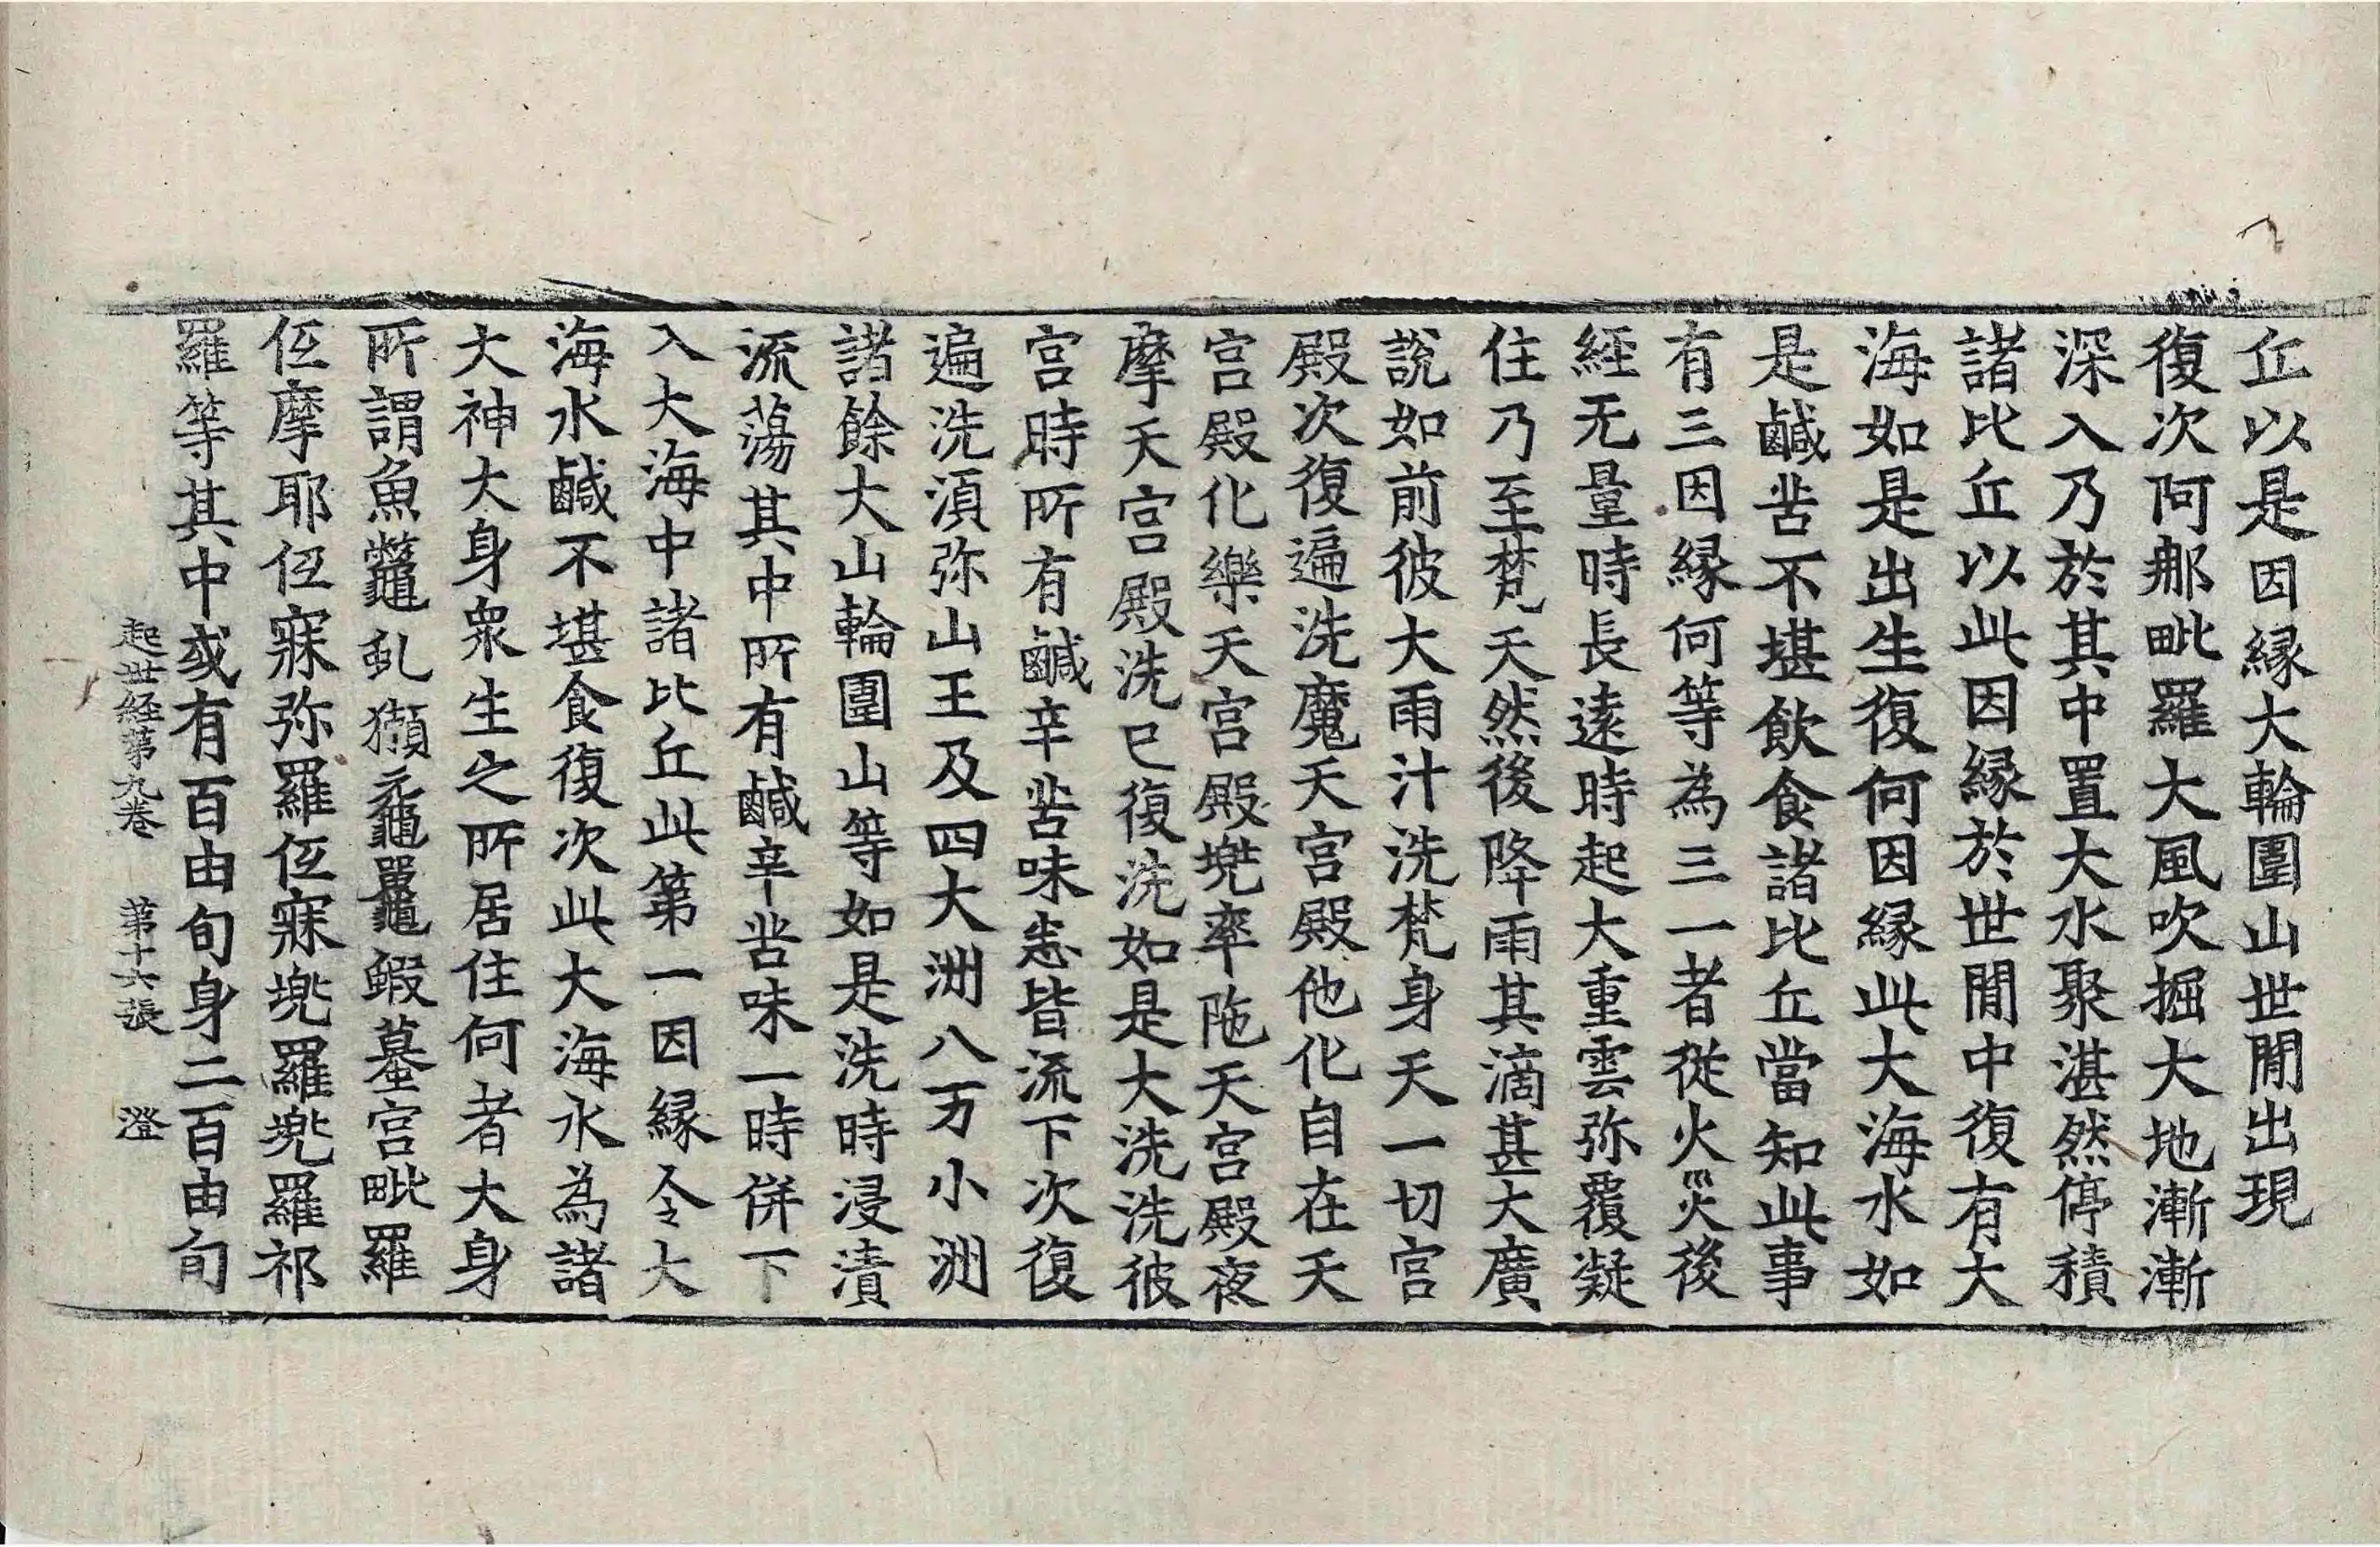 丘以是因縁大輪圍山世閒出現
復次阿那毗羅大風吹掘大地漸漸
深入乃於其中置大水聚湛然停積
諸比丘以此因縁於世閒中復有大
海如是出生復何因縁此大海水如
是鹹苦不堪飲食諸比丘當知此事
有三因縁何等為三一者從火災後
經无量時長遠時起大重雲弥覆凝
住乃至梵天然後降雨其滴甚大廣
說如前彼大雨汁洗梵身天一切宮
殿次復遍洗魔天宮殿他化自在天
宮殿化樂天宮殿兠率陁天宮殿夜
摩天宮殿洗已復洗如是大洗洗彼
宮時所有鹹辛苦味悉皆流下次復
遍洗湏弥山王及四大洲八万小洲
諸餘大山輪圍山等如是洗時浸漬
流蕩其中所有鹹辛苦味一時併下
入大海中諸比丘此第一因縁令大
海水鹹不堪食復次此大海水為諸
大神大身衆生之所居住何者大身
所謂魚鼈虬獺黿鼉蝦蟇宮毗羅
伍摩耶伍寐弥羅伍寐兠羅兠羅祁
羅等其中或有百由旬身二百由旬
起世経第九卷　第十六張　澄